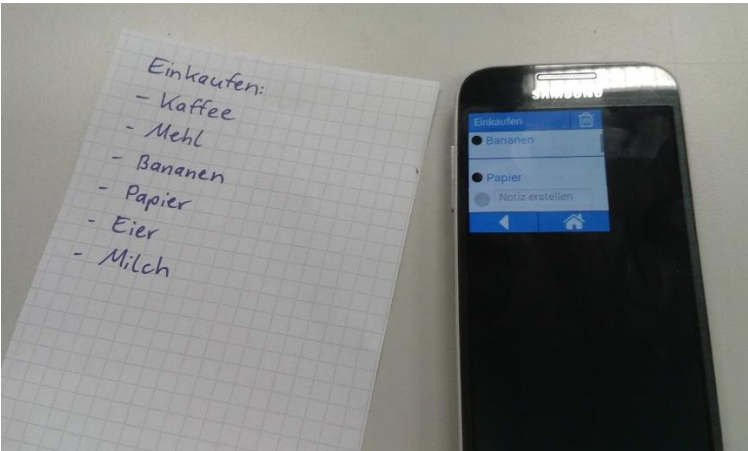 Einkaufen:
- Kaffee
- Mehl
- Bananen
- Papier
- Eier
- Milch
SAMSUNG
Einkaufen
Bananen
Papier
Notiz erstellen